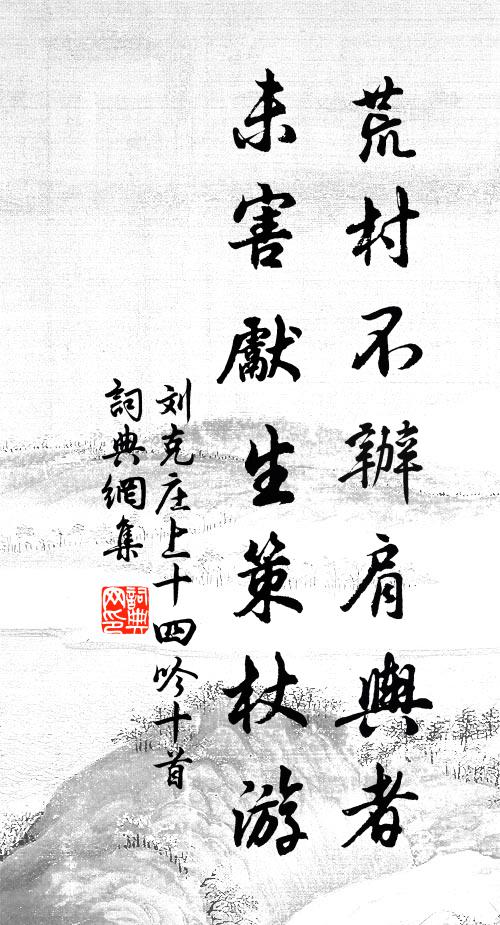 荒村不辦肩輿者
未害獻生策杖游
刘克庄上十四吟十首
詞典網集
詞典网印